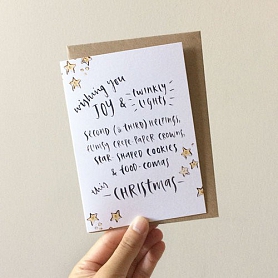 wishing you
JOY & twinkly
lights
second (& third) helpings,
flimsy crepe-paper crowns,
star-shaped cookies
& food-comas
this
CHRISTMAS